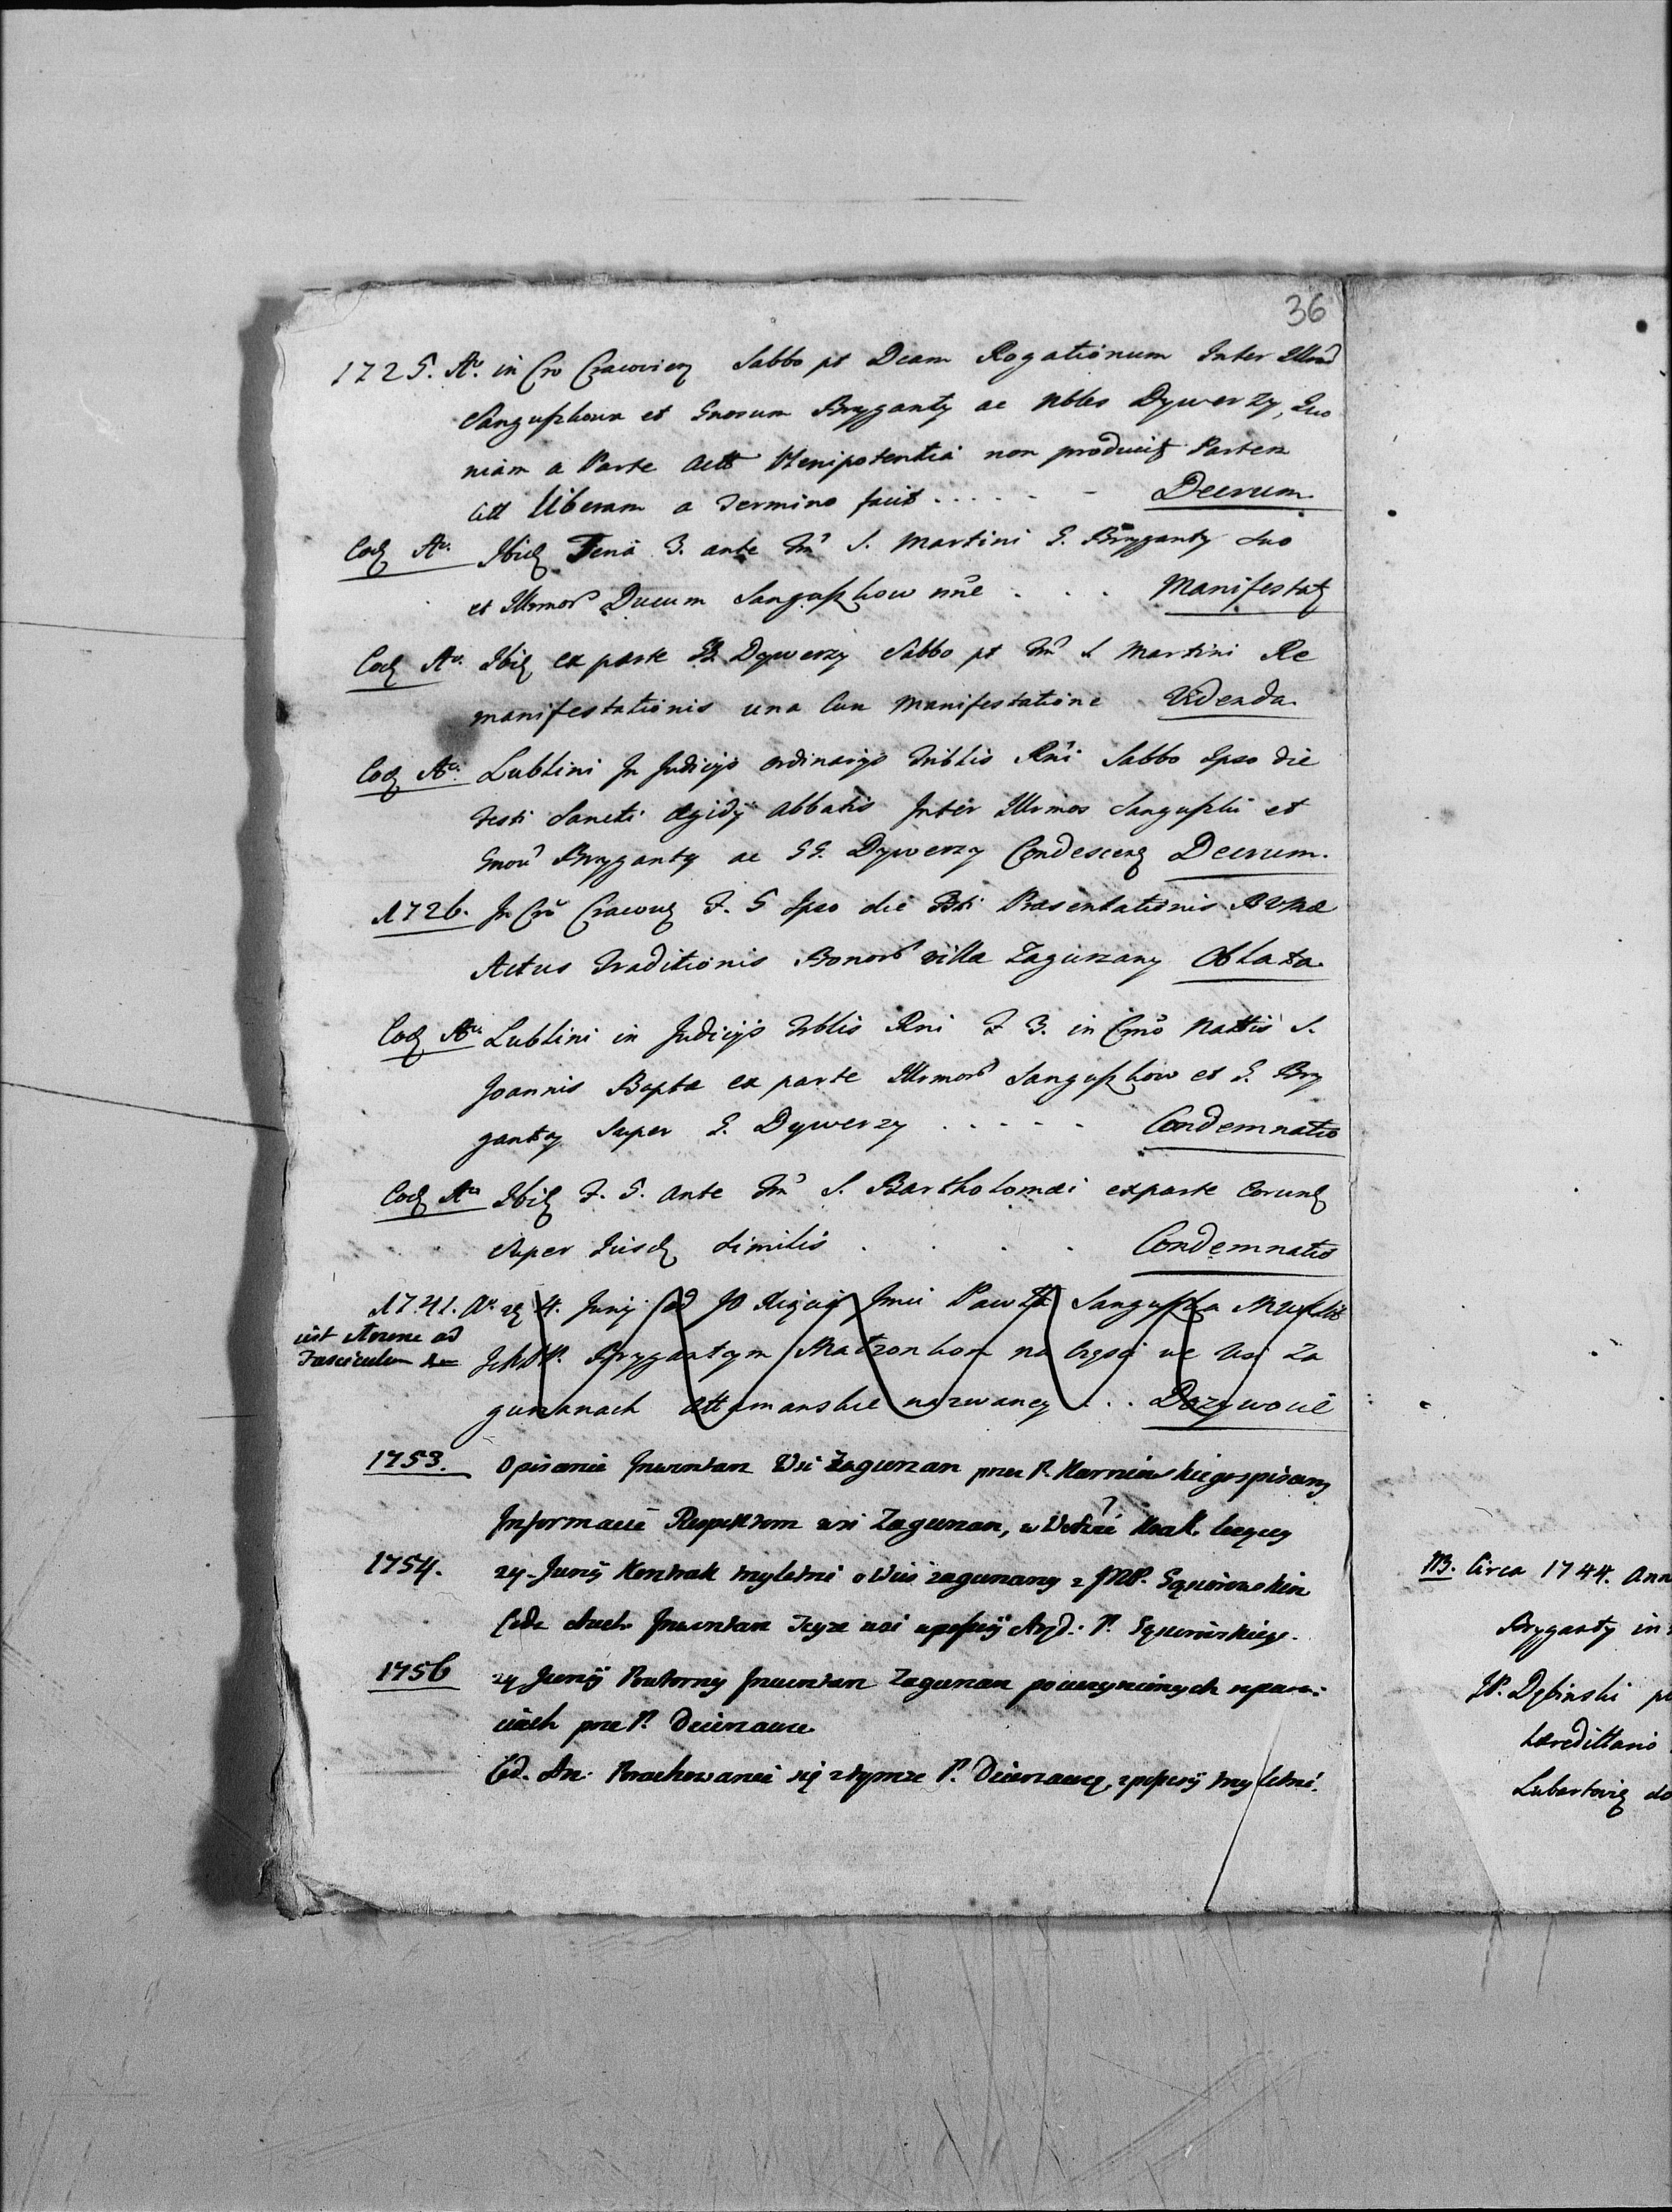 36
1725. Ao. in Cro Cracovien Sabbo pt Dcam Rogationum Inter Illres
Sanguszkow et Gnosum Bryganty ac Nbles Dywerzy, Quo
niam a Parte Actt Plenipotentia non producit Partem
Citt Liberam a Termino facit . . . . . Decrum.
Eod Ao. Ibid Feria 3. ante Fm S. Martini G. Bryganty Suo
et Illrmor Ducum Sanguszkow nne . . . Manifestat
Eod Ao. Ibid ex parte Dywerzy Sabbo pt Fm S Martini Re
manifestationis una Cum Manifestatione Videnda.
Eod Ao. Lublini In Judicijs ordinarijs Triblis Rni Sabbo Ipso die
Festi Sancti Ægidij Abbatis Inter Illrmos Sanguszki et
Gnou Bryganty ac GG. Dywerzy Condescens Decrum.
1726. In Cro Cracov F. 5 Ipso die Fsti Præsentationis
Actus Traditionis Bonor villæ Zagurzany Oblata.
Eod Ao Lublini in Judicijs Trblis Rni F 3. in Crno Nattis S.
Joannis Bapta ex parte Illrmor Sanguszkow et G. Bry
ganty Super G. Dywerzy . . . . . Condemnatio
Eod Ao Ibid F. 5. ante Fm S. Bartholomæi ex parte Eorund
Super Iisd Similis . . . . Condemnatio
1741. Ao. 24. Junij od JO Xiążąt Jmci Pawła Sanguszka
iest Aterne ad
Fasciculum
Bryganty m Małżonkom na Części we Wsi Za
gurzanach nazwaney . . . Dożywocie
1753. Opisanie Inwentarz Wsi Zagurzan przez P. Karniewskiego spisany
Informacie Respektem wsi Zagurzan, w Krak. leżącey
1754. 24. Junij Kontrak trzyletni o Wieś zagurzany z JMP. Gąsiorowskim
Inwentarz Teyże wsi P. Gąsiorowskiego.
1756 24 Junij Powtorny Inwentarz Zagurzan po uczynionych repara-
ciach prze P. Dzierzawce
Eod. An. Porachowanie się z tymże P. Dzierzawcą, z possesyi trzyletni.
NB. Circa 1744. Ann
Bryganty in
JP. Dębinski
hæredittario
Lubartowię do